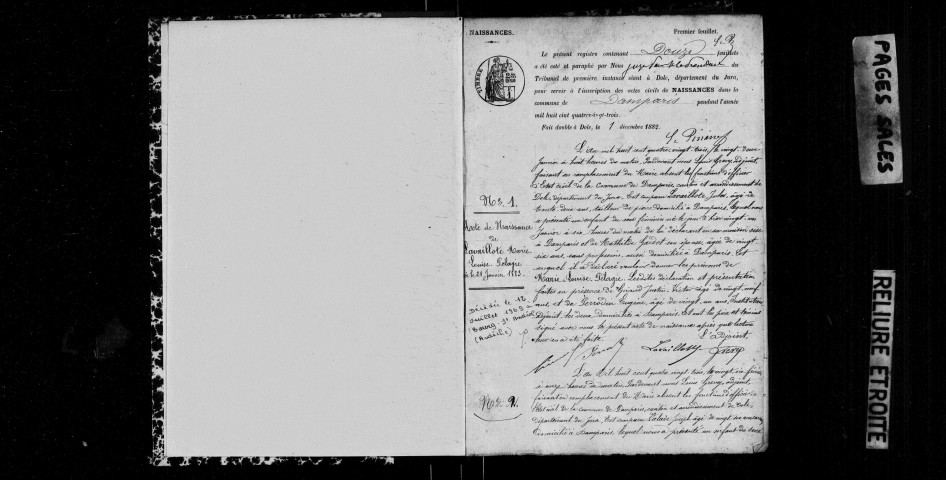 NAISSANCES.
Premier feuillet.
Le présent registre contenant Douze feuillets
a été coté et paraphé par Nous juge
Tribunal de première instance séant à Dole, département du Jura,
pour servir à l'inscription des actes civils de NAISSANCES dans la
commune de Damparis pendant l'année
mil huit cent quatre-vingt-trois.
Fait double à Dole, le 1 décembre 1882.
TIMBRE
No. 1.
Acte de Naissance
de
Lavaillote Marie
Louise Pélagie
le 21 Janvier 1883.
Décédée le 12
Juillet 1969 à
Bourg-St Andéol
(Ardèche)
L'an mil huit cent quatre vingt trois, le vingt deux
Janvier à huit heures du matin, Pardevant nous Louis Grevy, adjoint,
faisant en remplacement du Maire absent les fonctions d'officier
d'Etat civil de la Commune de Damparis, canton et arrondissement de
Dole, département du Jura, Est comparu Lavaillote Jules, âgé de
trente deux ans, tailleur de pierre domicilié à Damparis, lequel nous
a présenté un enfant de sexe féminin né le jour d'hier vingt-un
Janvier à six heures du matin de lui déclarant en sa maison sise
à Damparis et de Mathilde son épouse, âgée de vingt
six ans, sans profession, aussi domiciliée à Damparis, Et
auquel il a déclaré vouloir donner les prénoms de
Marie Louise Pélagie. Lesdites déclaration et présentation
faites en présence de Justin Victor âgé de vingt neuf
ans, et de Perrodin Eugène, âgé de vingt un ans, Instituteur
adjoint, les deux domiciliés à Damparis. Et ont les père et témoins
signé avec nous le présent acte de naissance après que lecture
leur en a été faite. L'adjoint,
Lavaillotte Grevy
No. 2.
L'an Mil huit cent quatre vingt trois, le vingt
à onze heures du matin, Pardevant nous Louis Grevy, adjoint,
faisant en remplacement du Maire absent les fonctions d'officier
d'Etat civil de la commune de Damparis, canton et arrondissement de Dole,
département du Jura, Est comparu Joseph âgé de vingt
domicilié à Damparis, lequel nous a présenté un enfant du sexe
PAGES SALES
RELIURE ETROITE